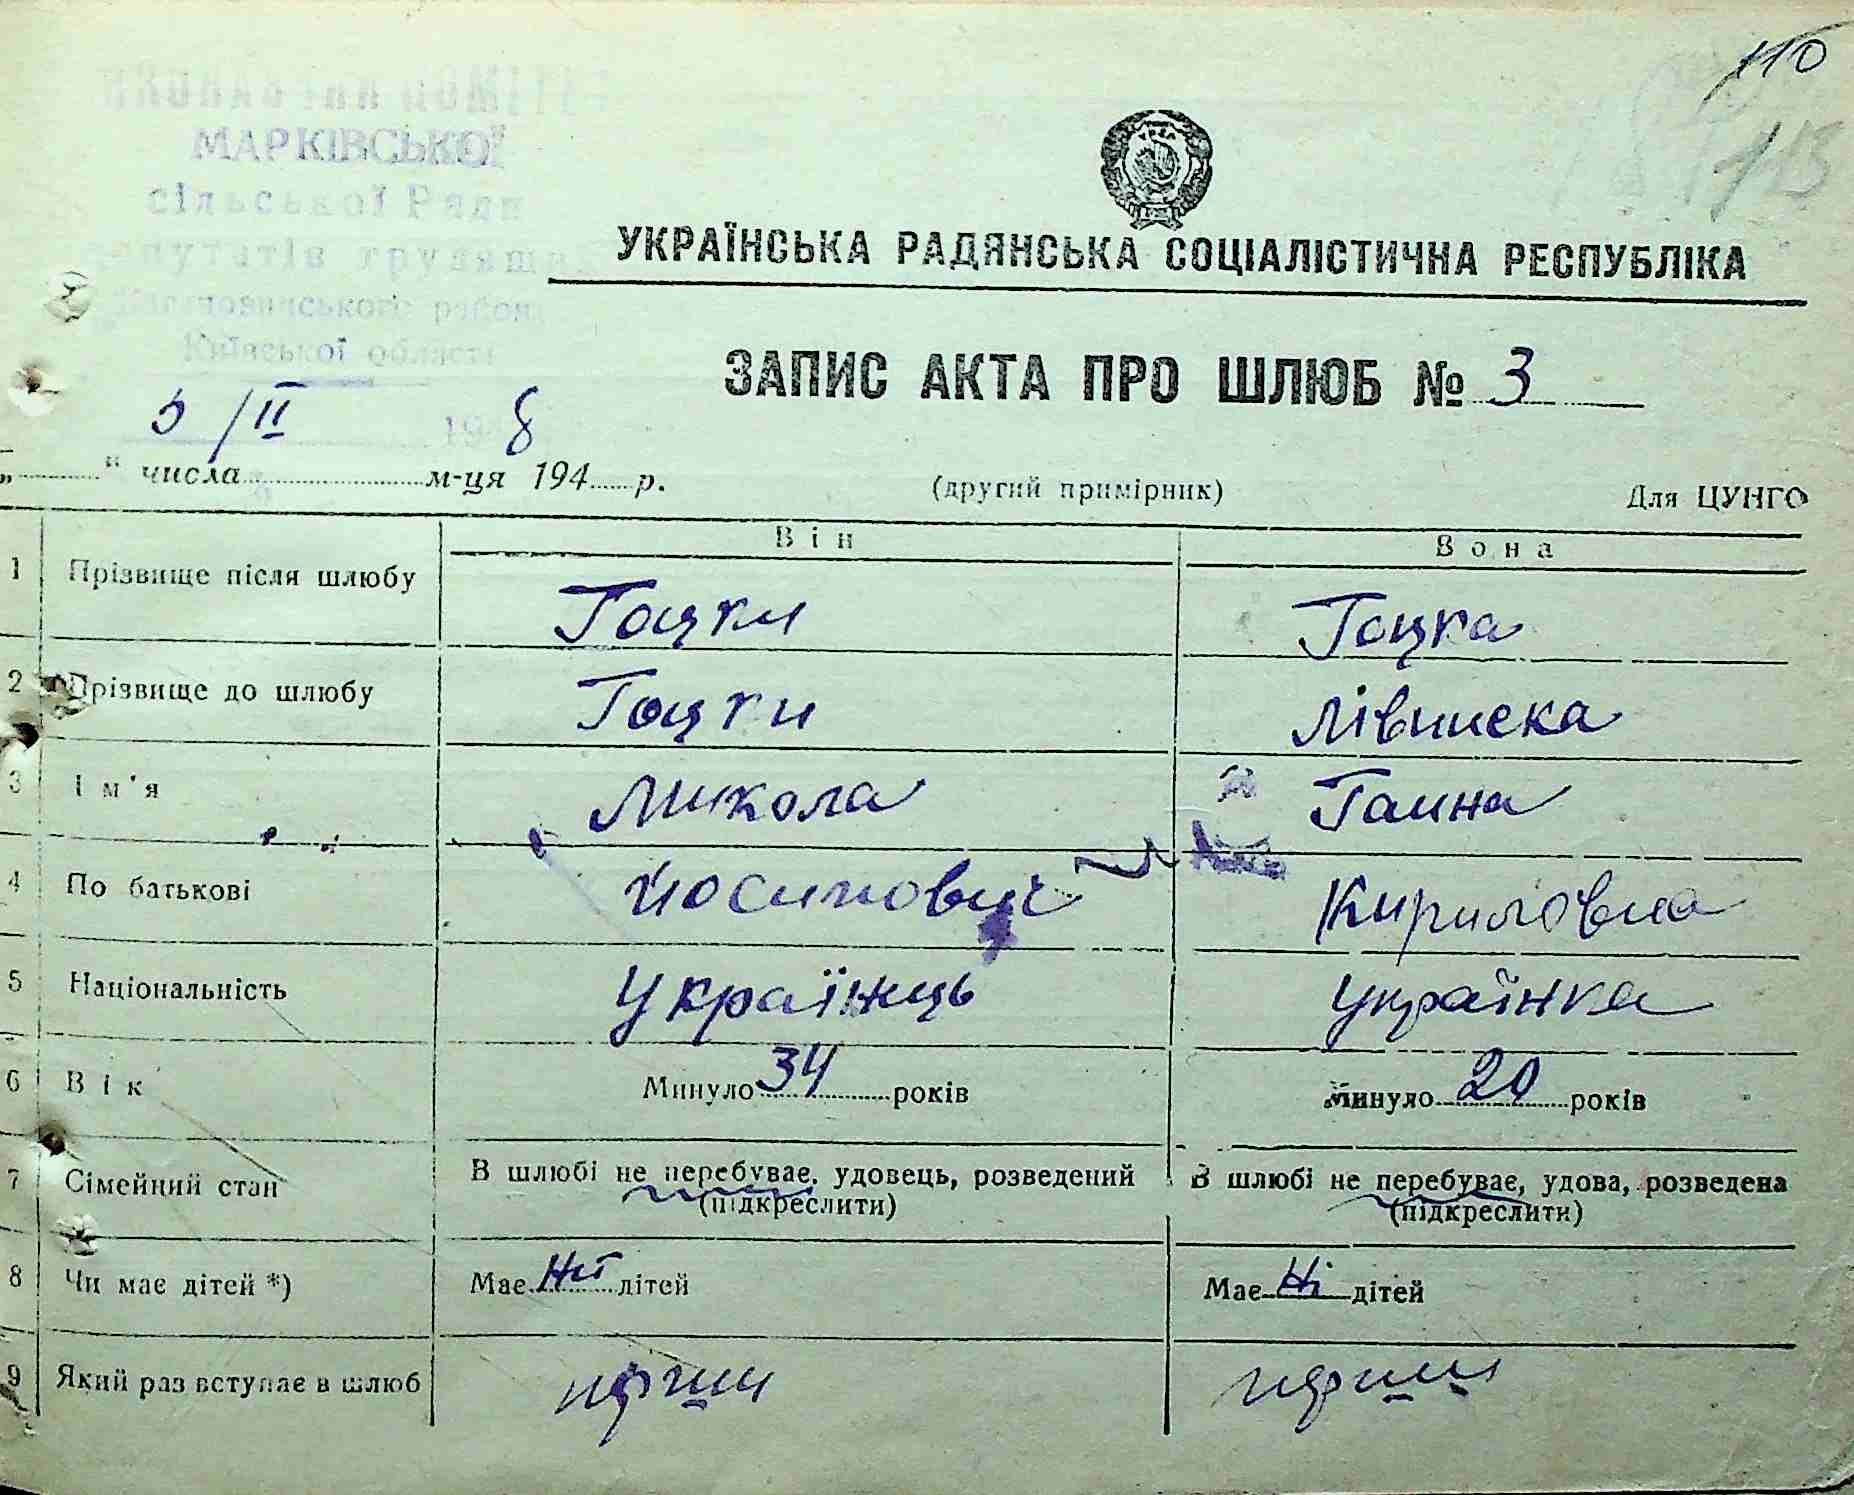 110
113
МАРКІВСЬКОЇ
сільської Ради
депутатів трудящих
району
Київської області
УРСР
УКРАЇНСЬКА РАДЯНСЬКА СОЦІАЛІСТИЧНА РЕСПУБЛІКА
ЗАПИС АКТА ПРО ШЛЮБ № 3
5/II 1948
„ “ числа м-ця 194 р.
(другий примірник)
Для ЦУНГО
Він Вона
1 Прізвище після шлюбу Гоцки Гоцка
2 Прізвище до шлюбу Гоцки Лівинска
3 Ім'я Микола Ганна
4 По батькові Йосипович Кириловна
5 Національність Українць Українка
6 Вік Минуло 34 років Минуло 20 років
7 Сімейний стан В шлюбі не перебуває, удовець, розведений В шлюбі не перебуває, удова, розведена
(підкреслити) (підкреслити)
8 Чи має дітей *) Має Ні дітей Має Ні дітей
9 Який раз вступає в шлюб